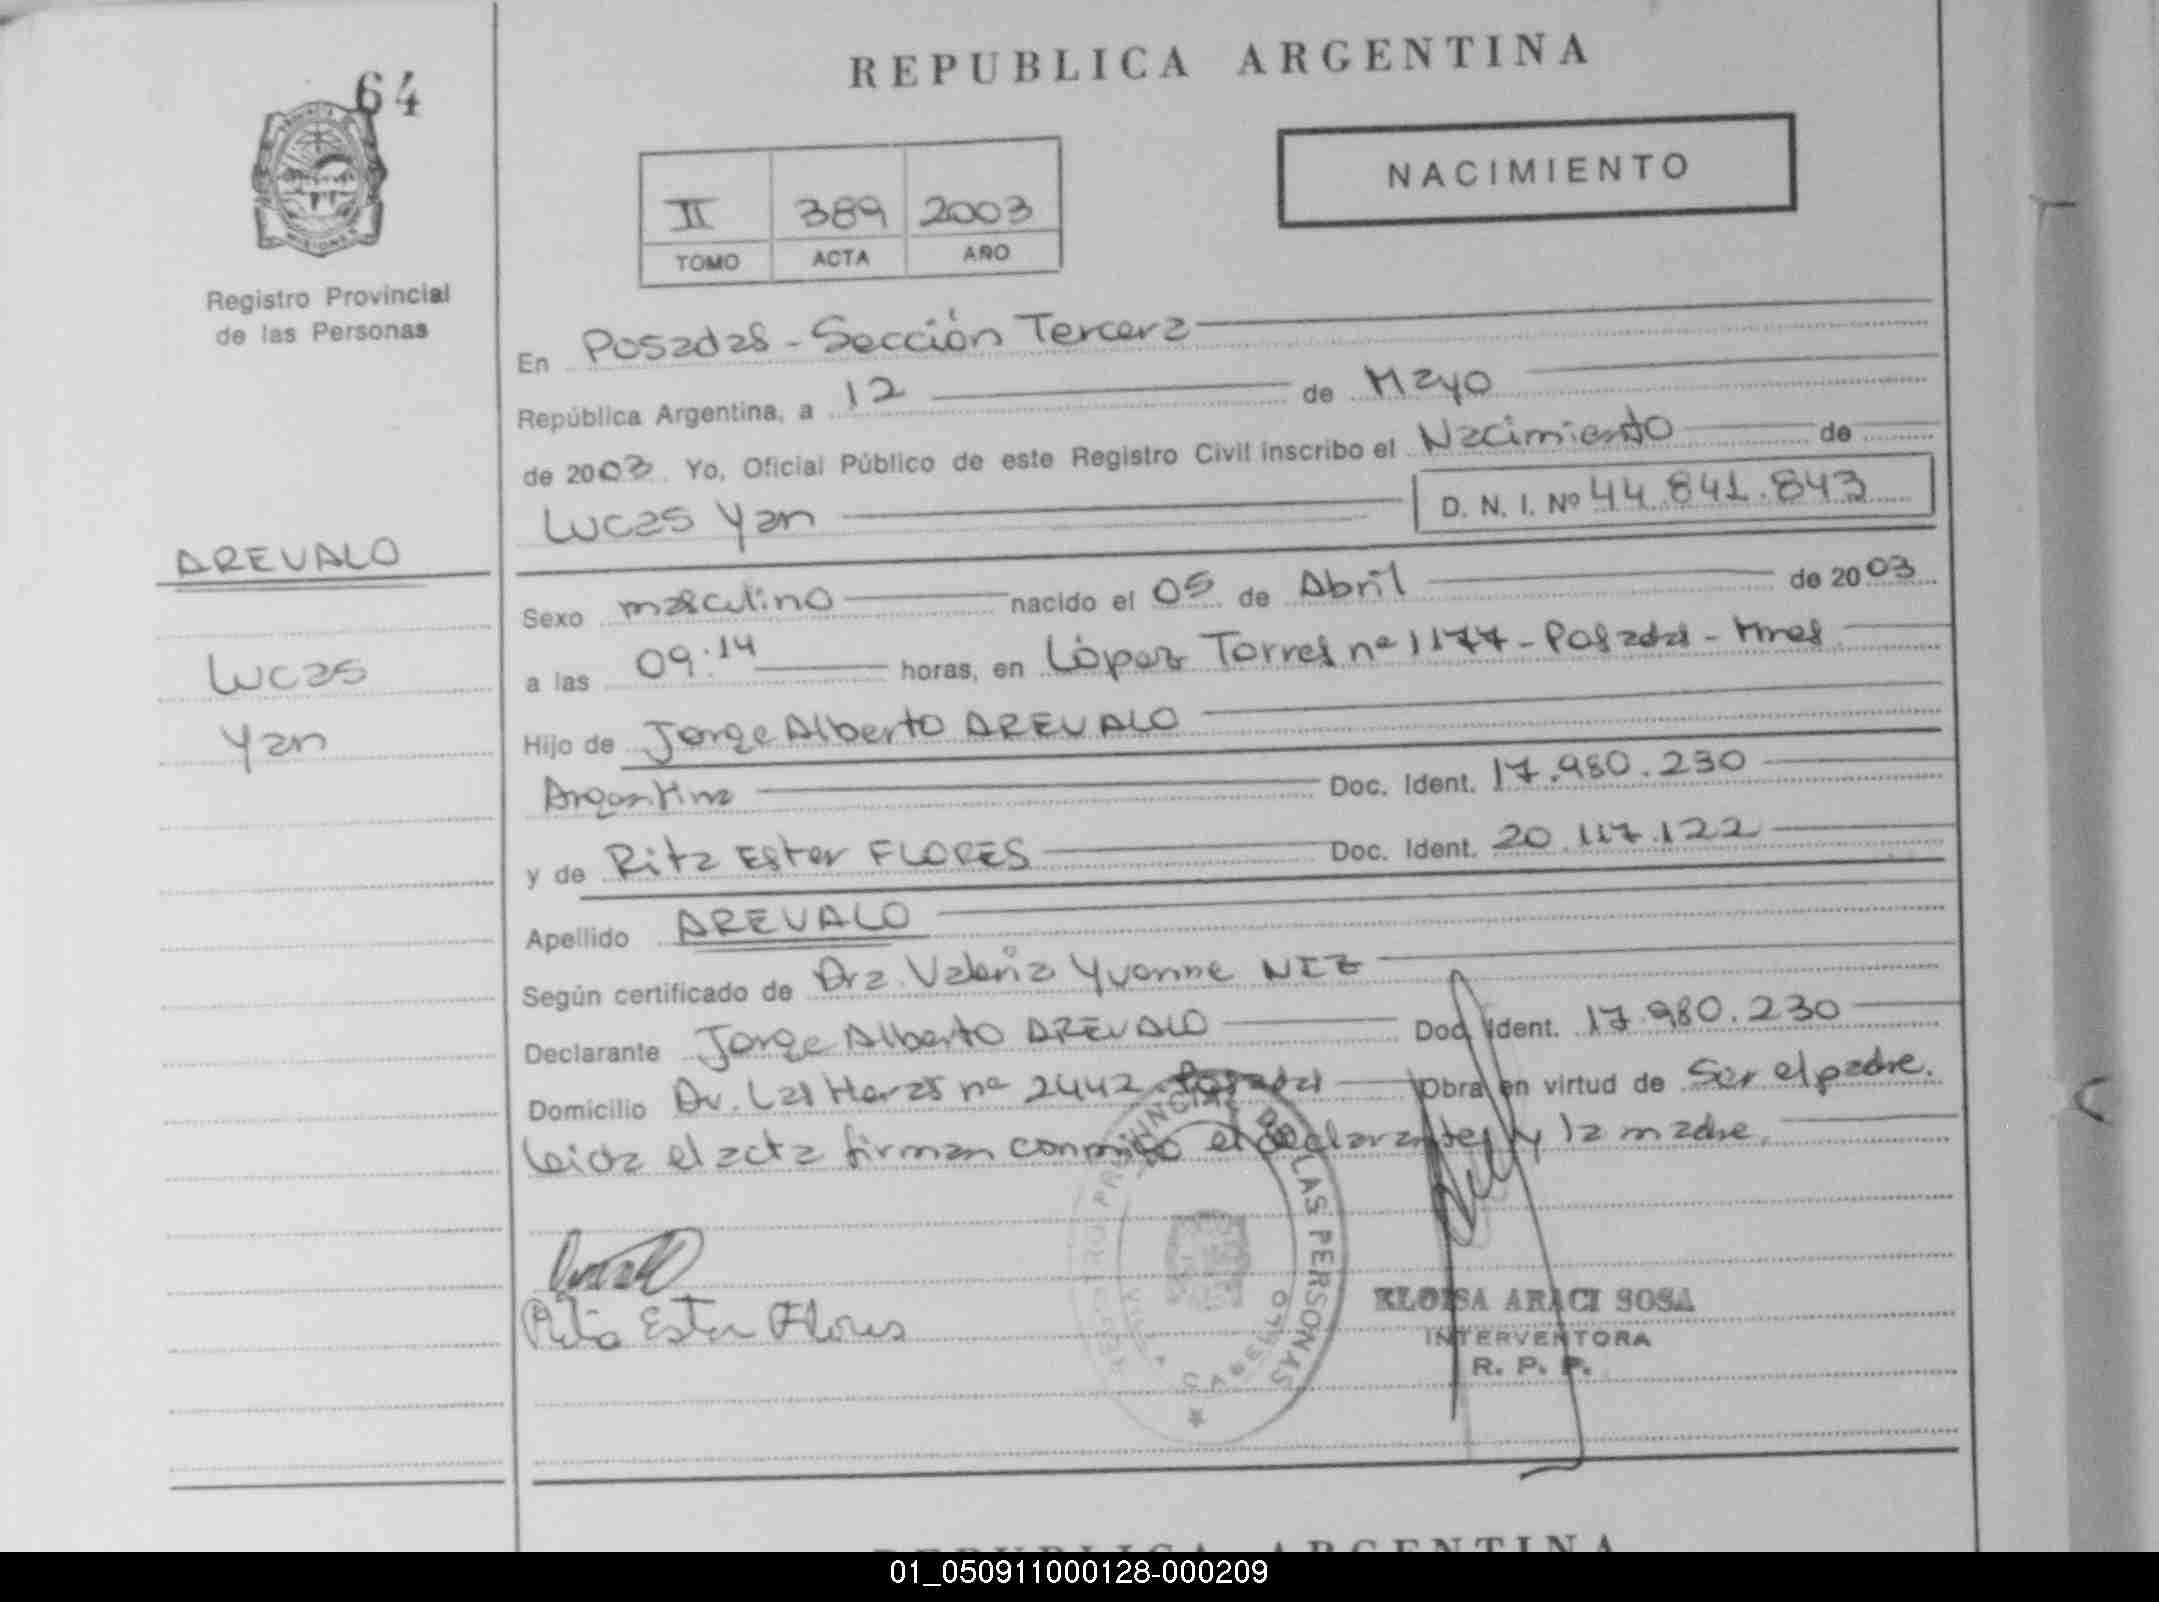 64
REPUBLICA ARGENTINA
NACIMIENTO
II 389 2003
TOMO ACTA AÑO
Registro Provincial
de las Personas
En Posadas - Sección Tercera
República Argentina, a 12 de Mayo
de 2003 Yo, Oficial Público de este Registro Civil inscribo el Nacimiento de
Lucas Yan D. N. I. Nº 44.841.843
AREVALO
Lucas
Yan
Sexo masculino nacido el 05 de Abril de 2003
a las 09:14 horas, en López Torres nº 1177 - Posadas - Mnes.
Hijo de Jorge Alberto AREVALO
Argentina Doc. Ident. 17.980.230
y de Rita Ester FLORES Doc. Ident. 20.117.122
Apellido AREVALO
Según certificado de Dra. Valeria Yvonne NIZ
Declarante Jorge Alberto AREVALO Doc. Ident. 17.980.230
Domicilio Av. Las Heras nº 2442 Posadas Obra en virtud de Ser el padre.
Leida el acta firman conmigo el declarantes y la madre.
Rita Ester Flores
REGISTRO PROVINCIAL DE LAS PERSONAS
VILLA CABELLO
ELOISA ARACI SOSA
INTERVENTORA
R. P. P.
REPUBLICA ARGENTINA
01_050911000128-000209